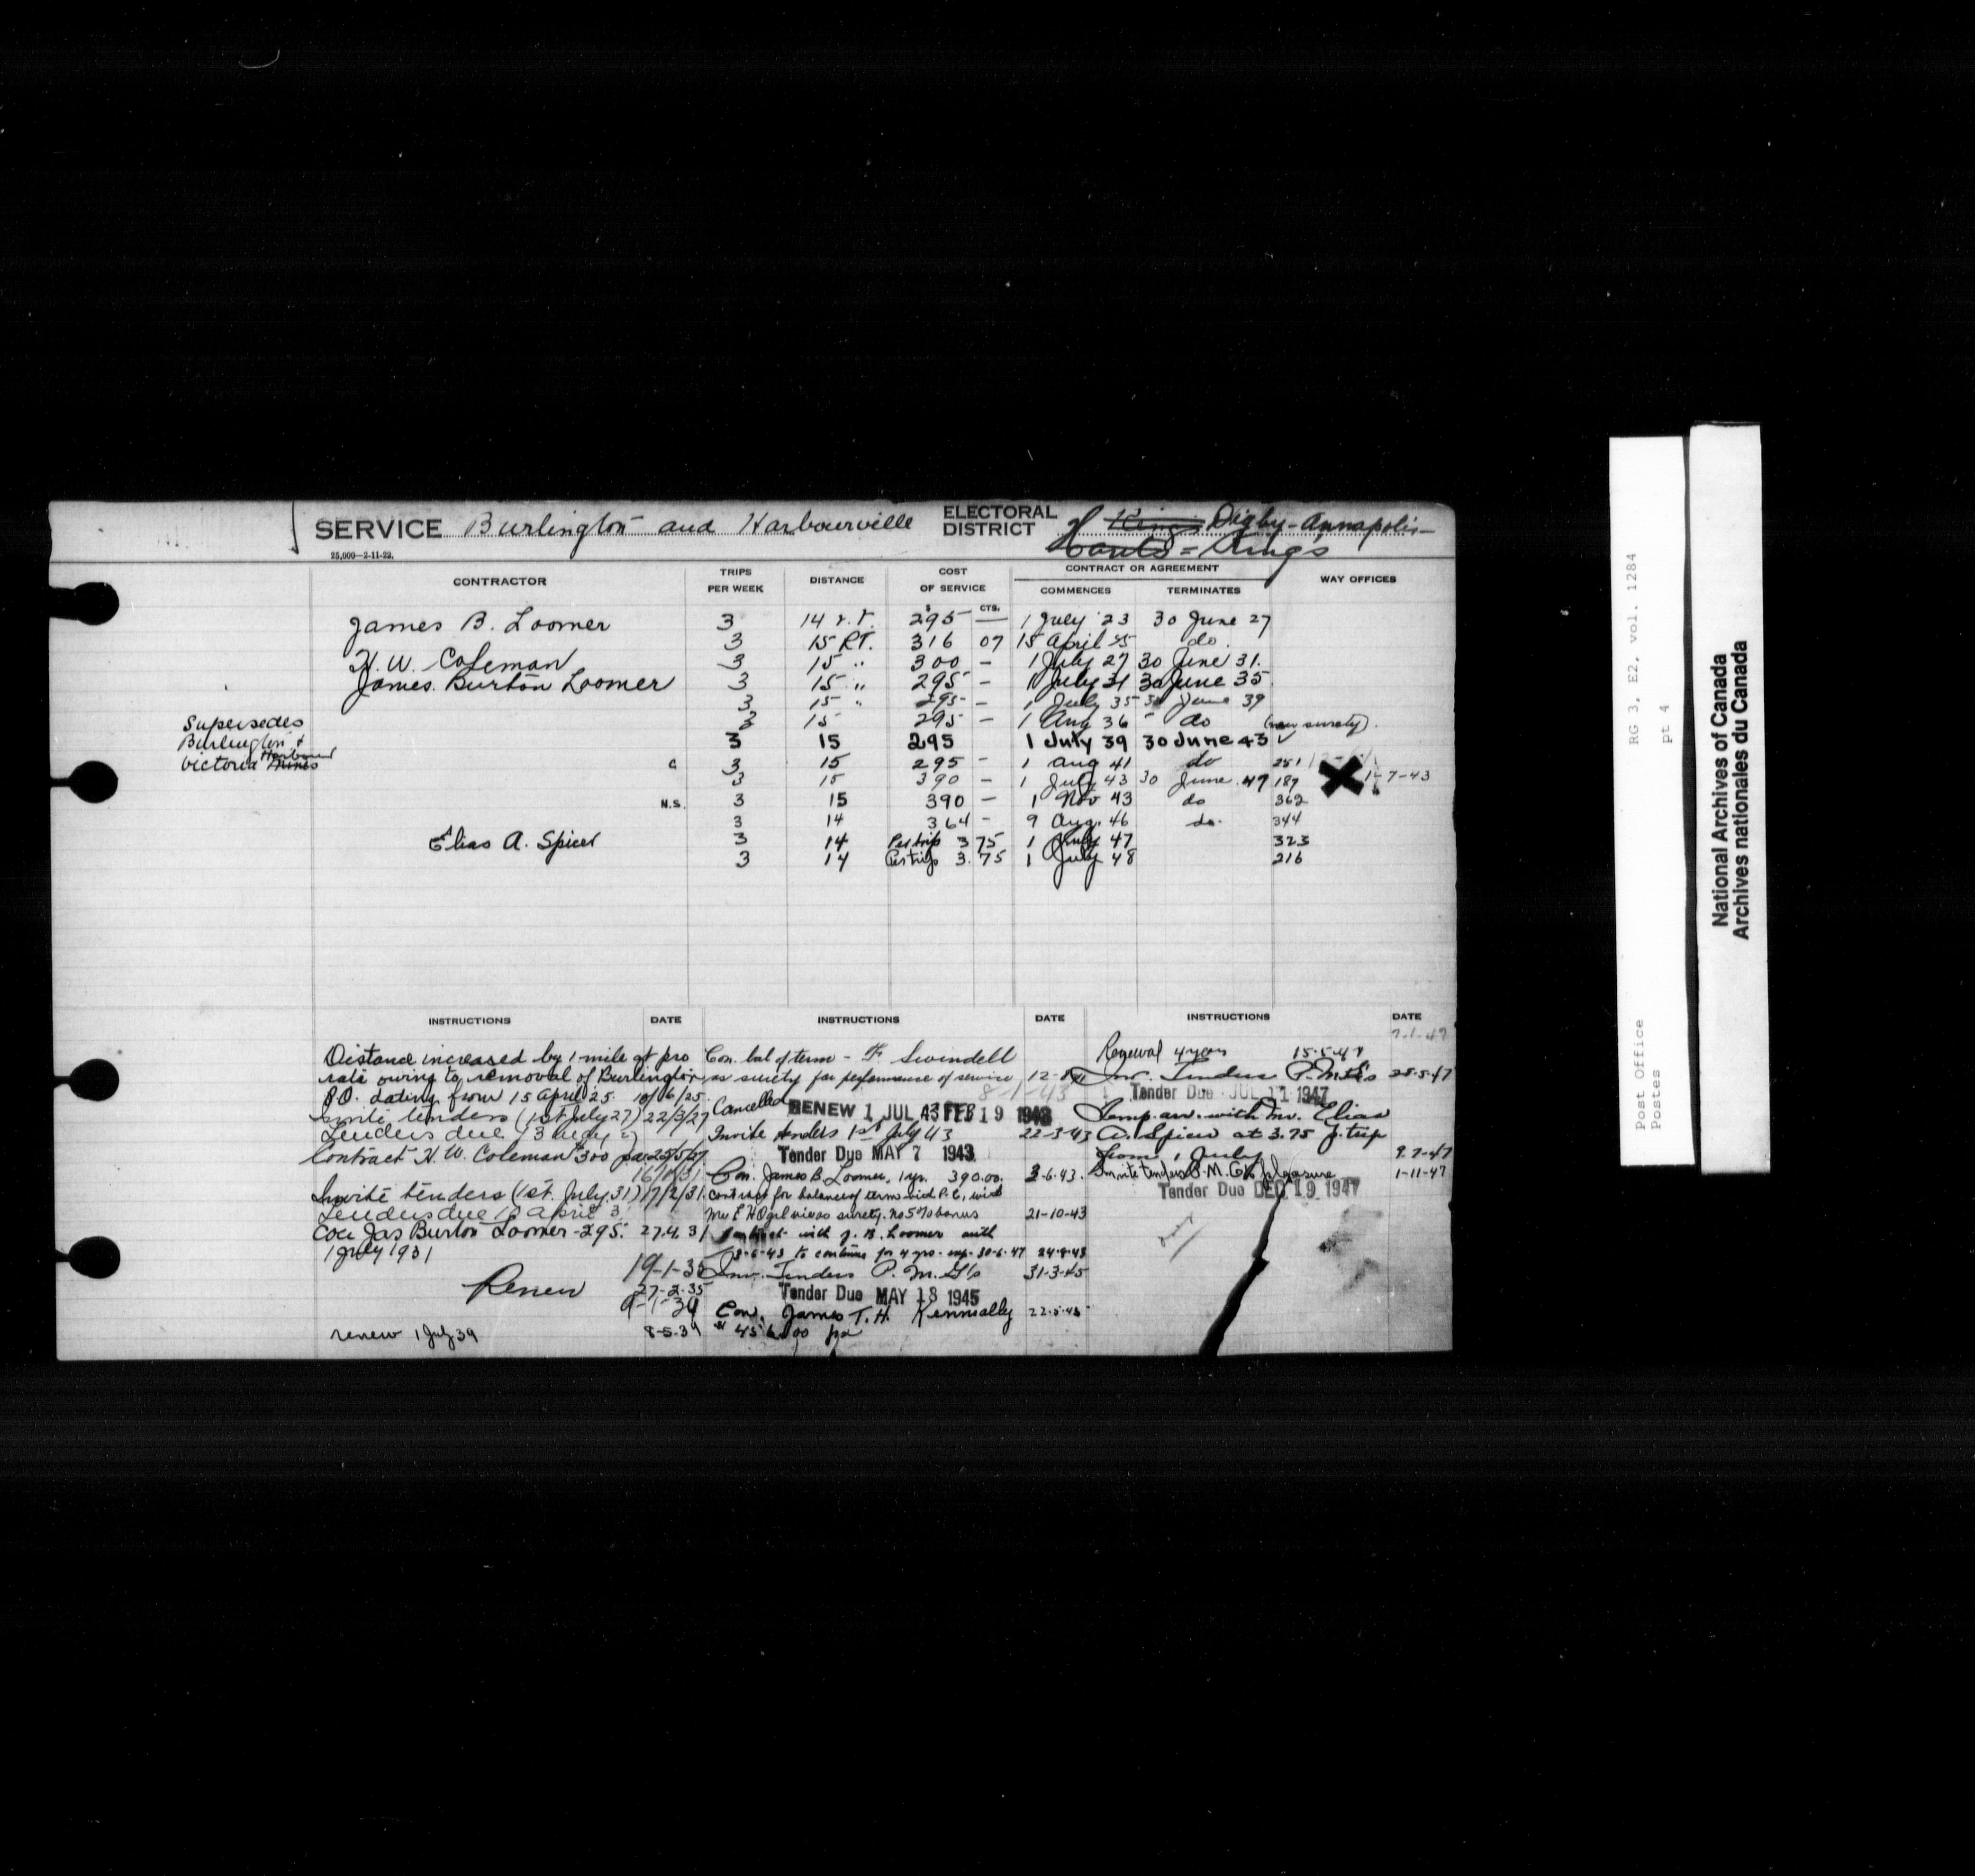 SERVICE Burlington and Harbourville ELECTORAL DISTRICT Kings Digby-Annapolis-
Hants = Kings
25,000—2-11-22.
CONTRACTOR TRIPS PER WEEK DISTANCE COST OF SERVICE CONTRACT OR AGREEMENT WAY OFFICES
COMMENCES TERMINATES
$ CTS.
James B. Loomer 3 14 r.t. 295 — 1 July '23 30 June 27
3 15 RT. 316 07 15 April 25 do.
H. W. Coleman 3 15 " 300 - 1 July 27 30 June 31.
James Burton Loomer 3 15 " 295 - 1 July 31 30 June 35
3 15 " 295 - 1 July 35 30 June 39
Supersedes 3 15 295 - 1 Aug 36 - do (new surety).
Burlington & 3 15 295 1 July 39 30 June 43 ✓
Victoria Mines Harbour c 3 15 295 - 1 Aug 41 do 251
3 15 390 - 1 July 43 30 June 47 187 1-7-43
N.S. 3 15 390 - 1 Nov 43 do 362
3 14 364 - 9 Aug. 46 do. 344
Elias A. Spicer 3 14 Per trip 3 75 1 July 47 323
3 14 Per trip 3.75 1 July 48 216
INSTRUCTIONS DATE INSTRUCTIONS DATE INSTRUCTIONS DATE
7-1-47
Distance increased by 1 mile at pro
rata owing to removal of Burlington
P.O. dating from 15 April 25. 10/6/25.
Invite tenders (1st July 27) 22/3/27
Tenders due 13
Contract H. W. Coleman $300 pa 25/5/27
16/10/31
Invite tenders (1st. July, 31) 17/2/31.
Tenders due 10 April 3
Con Jas Burton Loomer - 295. 27.4.31
1 July 1931
19-1-35
Renew 27-2-35
9-1-39
renew 1 July 39 8-5-39
Con. bal of term - F. Swindell
as surety for performance of service 12-8-41
8-1-43
Cancelled RENEW 1 JUL 43 FEB 19 1943
Invite tenders 1st July 43 22-3-43
Tender Due MAY 7 1943
Con. James B. Loomer, 1 yr. 390.00. 3-6-43.
Contract for balance of term with P.C, with
Mr E H Ogilvie as surety. no 5% bonus 21-10-43
Contract with J. B. Loomer auth
3-6-43 to continue for 4 yrs. exp. 30-6-47 24-8-43
Inv. Tenders P. M. G's 31-3-45
Tender Due MAY 18 1945
Con. James T. H. Kennially 22-5-45
at 456.00 pa
Renewal 4 years 15-5-47
Inv. Tenders P.M.G's 28-5-47
Tender Due JUL 11 1947
Temp arr. with Mr. Elias
A. Spicer at 3.75 p. trip
from 1 July 9-7-47
Invite tenders P.M.G's pleasure 1-11-47
Tender Due DEC 19 1947
Post Office RG 3, E2, vol. 1284
Postes pt 4
National Archives of Canada
Archives nationales du Canada